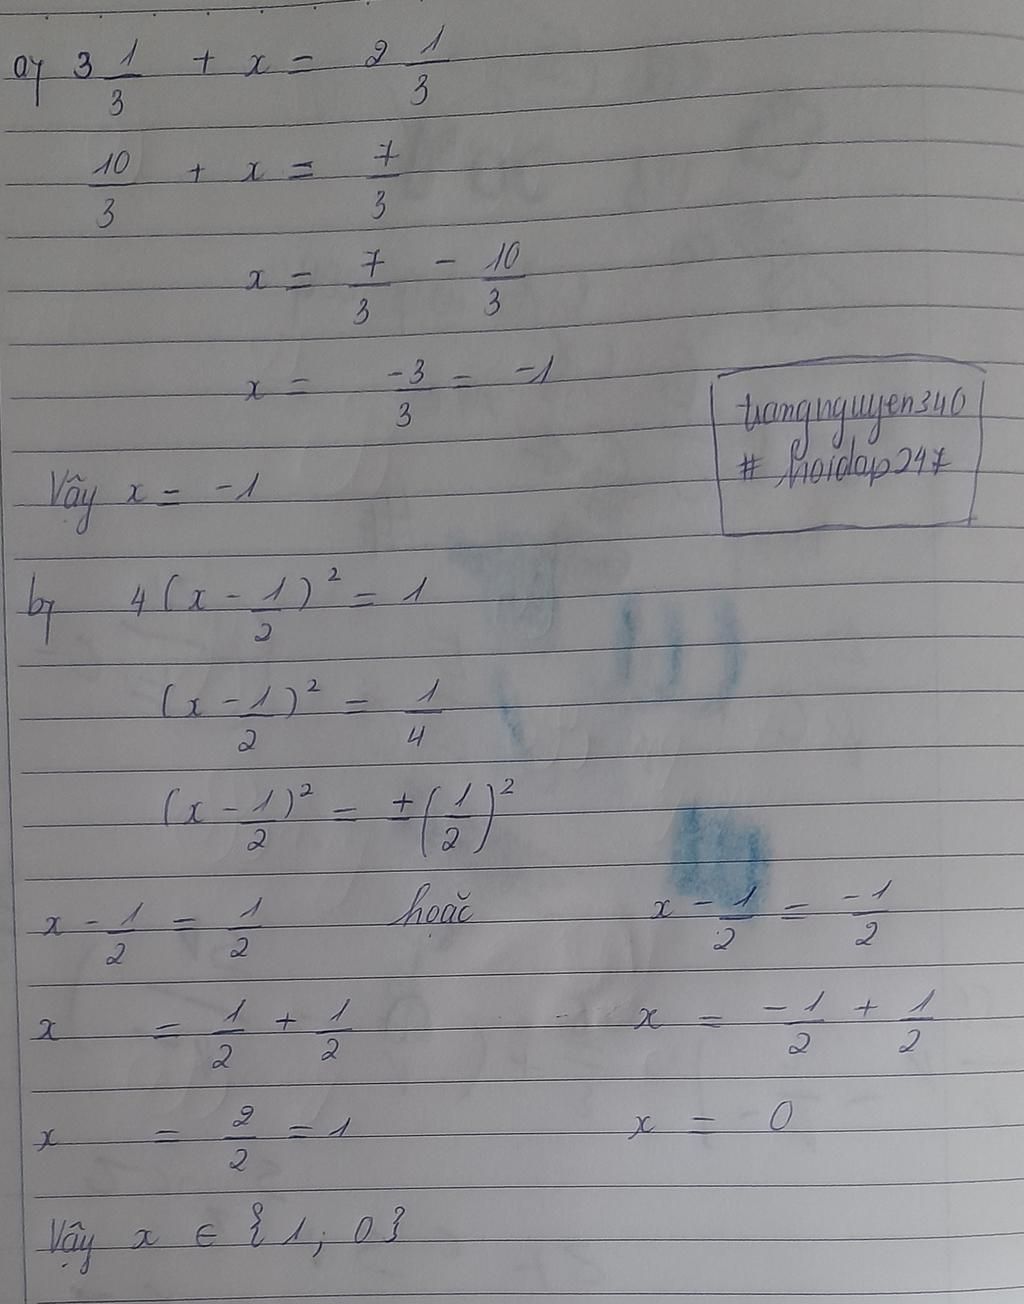 a) 3 1/3 + x = 2 1/3
10/3 + x = 7/3
x = 7/3 - 10/3
x = -3/3 = -1
trangnguyen340
# hoidap247
Vậy x = -1
b) 4(x - 1/2)² = 1
(x - 1/2)² = 1/4
(x - 1/2)² = ±(1/2)²
x - 1/2 = 1/2 hoặc x - 1/2 = -1/2
x = 1/2 + 1/2 x = -1/2 + 1/2
x = 2/2 = 1 x = 0
Vậy x ∈ {1; 0}